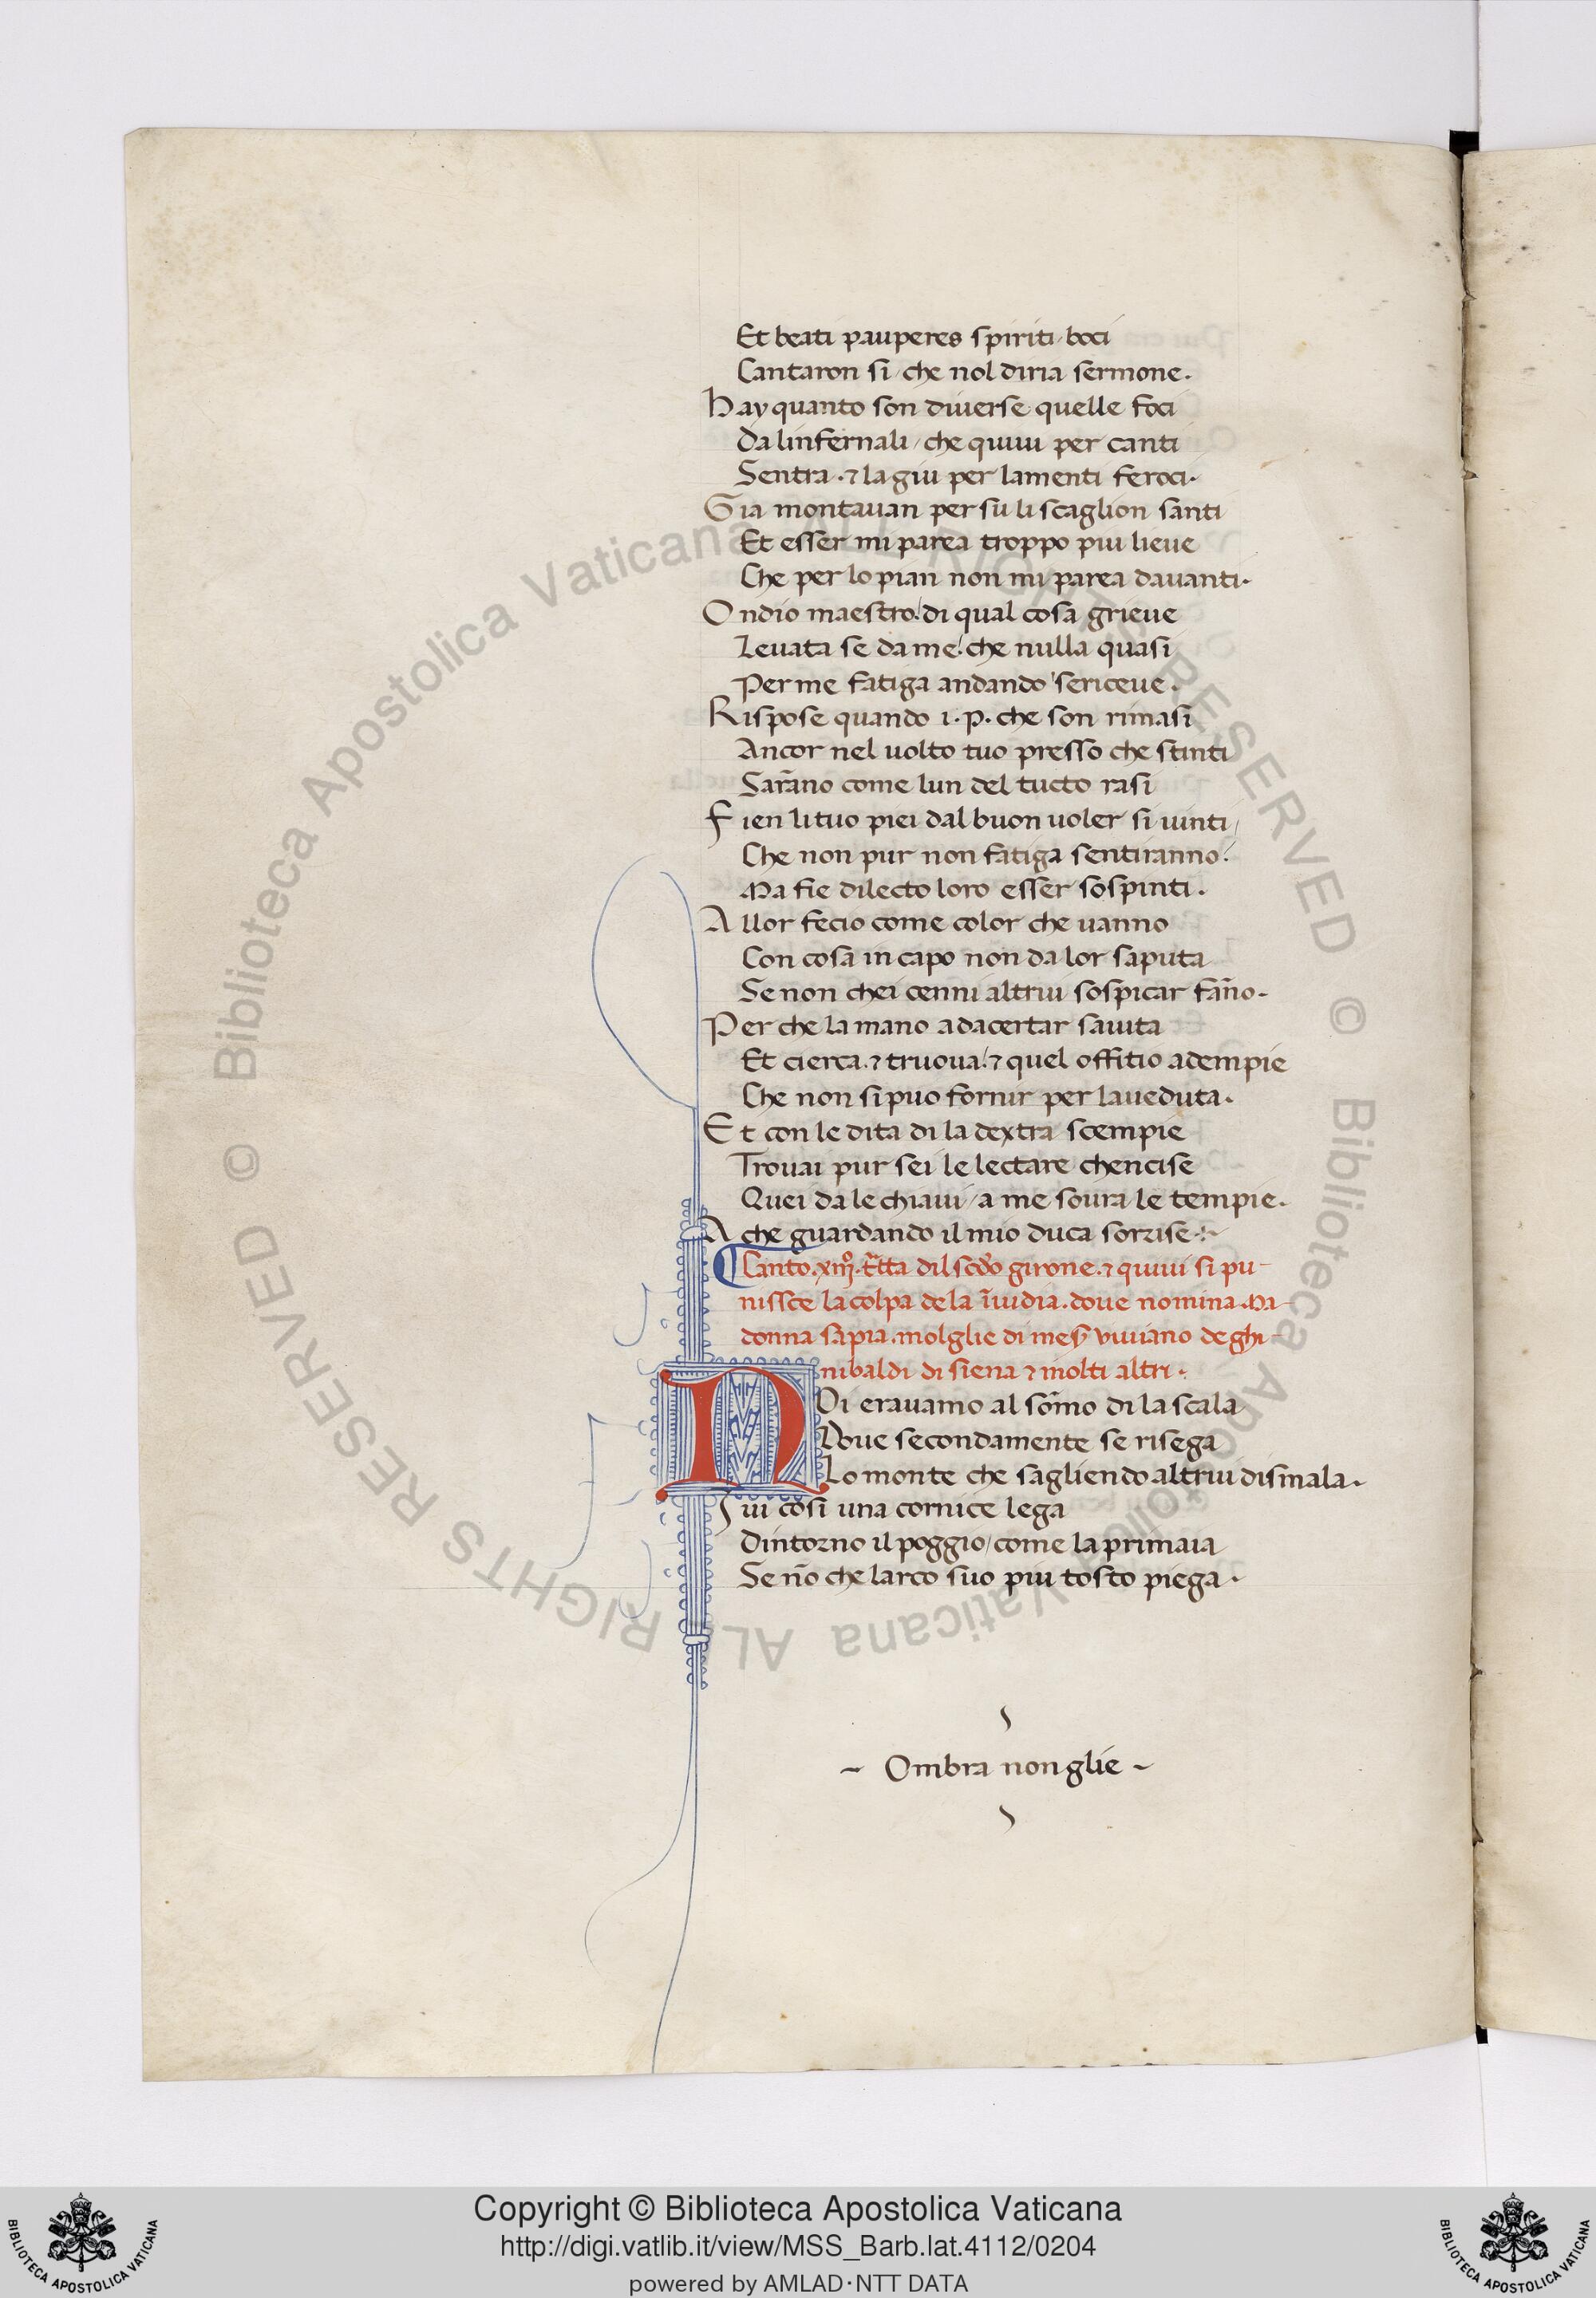 Et beati pauperes spiriti / boci
Cantaron si / che nol diria sermone.
Hay quanto son diuerse quelle foci
Da linfernali / che quiui per canti
Sentra. ⁊ la giu per lamenti feroci.
Gia montauan per su li scaglion santi
Et esser mi parea troppo piu lieue
Che per lo pian non mi parea dauanti.
Ondio maestro! di qual cosa grieue
Leuata se da me! che nulla quasi
Per me fatiga andando / sericeue.
Rispose quando i .P. che son rimasi
Ancor nel uolto tuo presso che stinti
Sarãno come lun del tucto rasi
Fien li tuo piei dal buon uoler si uinti /
Che non pur non fatiga sentiranno!
Ma fie dilecto loro esser sospinti.
Allor fecio come color che uanno
Con cosa in capo non da lor saputa
Se non chei cenni altrui sospicar fãno.
Per che la mano adacertar saiuta
Et cierca. ⁊ truoua! ⁊ quel offitio adempie
Che non si puo fornir per la ueduta.
Et con le dita di la dextra scempie
Trouai pur sei le lectare chencise
Quei da le chiaui / a me soura le tempie.
A che guardando il mio duca sorrise
Canto .xiij°. t̃cta dil sc̃do girone. ⁊ quiui si pu-
nissce la colpa de la ĩuidia. doue nomina Ma-
donna sapia. molglie di mes̃ viuiano de ghi-
nibaldi di siena ⁊ molti altri.
NOi erauamo al sõmo di la scala
Doue secondamente se risega
Lo monte che sagliendo altrui dismala.
Iui cosi una cornice lega
Dintorno il poggio / come la primaia
Se nõ che larco suo piu tosto piega.
- Ombra non glie -
© Biblioteca Apostolica Vaticana ALL RIGHTS RESERVED © Biblioteca Apostolica Vaticana ALL RIGHTS RESERVED
Copyright © Biblioteca Apostolica Vaticana
http://digi.vatlib.it/view/MSS_Barb.lat.4112/0204
powered by AMLAD·NTT DATA
BIBLIOTECA APOSTOLICA VATICANA
BIBLIOTECA APOSTOLICA VATICANA